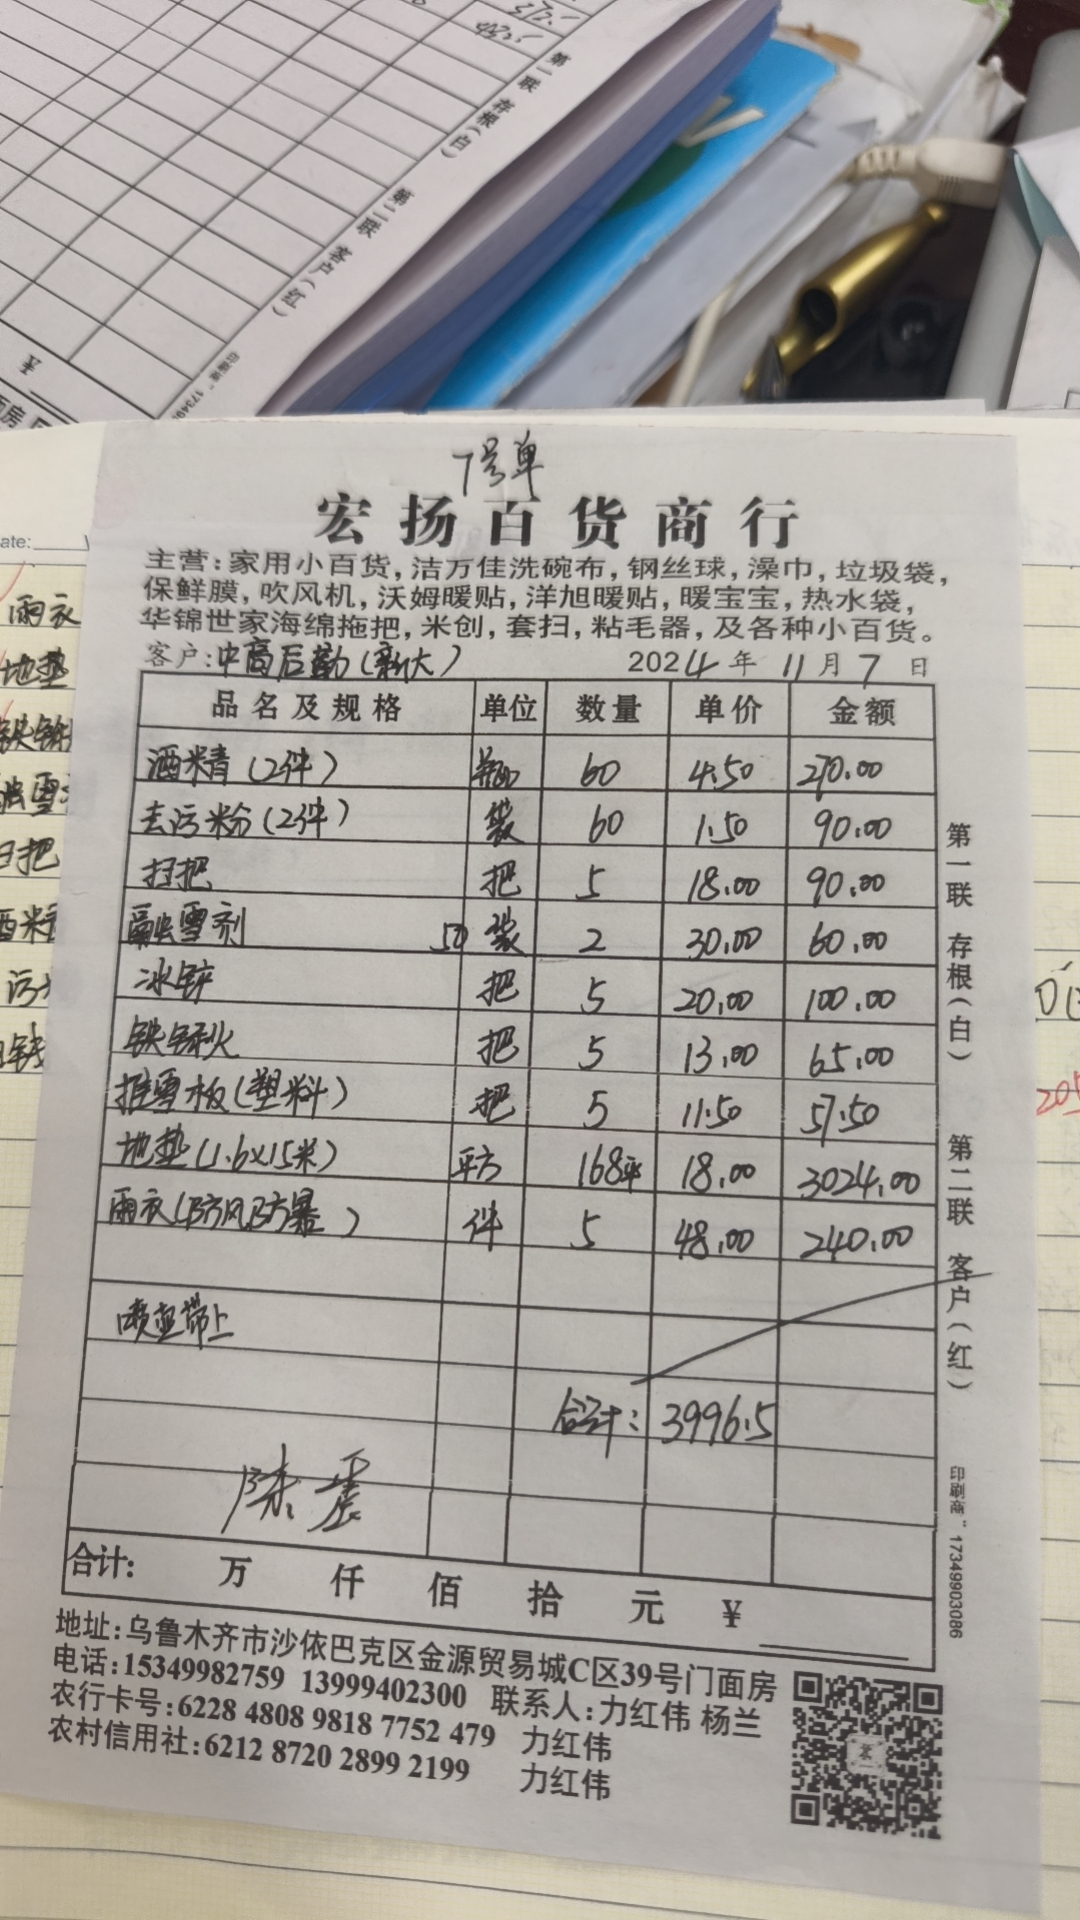 第一联 存根(白) 第二联 客户(红)
¥
ate:
雨衣
地垫
7号单
宏扬百货商行
主营:家用小百货,洁万佳洗碗布,钢丝球,澡巾,垃圾袋,
保鲜膜,吹风机,沃姆暖贴,洋旭暖贴,暖宝宝,热水袋,
华锦世家海绵拖把,米创,套扫,粘毛器,及各种小百货。
客户:中高后勤(新大) 2024年 11月 7日
品名及规格 单位 数量 单价 金额
酒精(2件) 瓶 60 4.50 270.00
去污粉(2件) 袋 60 1.50 90.00
扫把 把 5 18.00 90.00
融雪剂 50 袋 2 30.00 60.00
冰锌 把 5 20.00 100.00
铁锹 把 5 13.00 65.00
推雪板(塑料) 把 5 11.50 57.50
地垫(1.6×15米) 平方 168平 18.00 3024.00
雨衣(防风防暴) 件 5 48.00 240.00
喷壶带上
合计: 3996.5
陈震
合计: 万 仟 佰 拾 元 ¥
第一联 存根(白) 第二联 客户(红)
印刷商:17349903086
地址:乌鲁木齐市沙依巴克区金源贸易城C区39号门面房
电话:15349982759 13999402300 联系人:力红伟 杨兰
农行卡号:6228 4808 9818 7752 479 力红伟
农村信用社:6212 8720 2899 2199 力红伟